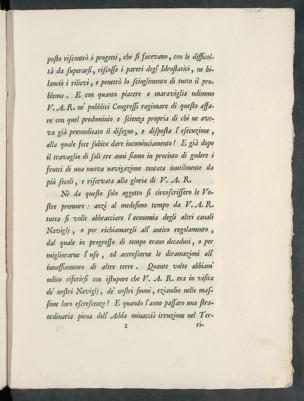 posto riscontrò i progetti, che si facevano, con le difficol-
tà da superarsi, riscosse i pareri degl' Idrostatici, ne bi-
lanciò i rilievi, e penetrò lo scioglimento di tutto il pro-
blema. E con quanto piacere e maraviglia udimmo
V. A. R. ne' pubblici Congressi ragionare di questo affa-
re con quel predominio e scienza propria di chi ne ave-
va già premeditato il disegno, e disposta l'esecuzione,
alla quale fece subito dare incominciamento! E già dopo
il travaglio di soli tre anni siamo in procinto di godere i
frutti di una nuova navigazione tentata inutilmente da
più secoli, e riservata alla gloria di V. A. R.
Nè da questo solo oggetto si circoscrissero le Vo-
stre premure: anzi al medesimo tempo da V. A. R.
tutta si volle abbracciare l'economia degli altri canali
Naviglj, o per richiamargli all'antico regolamento,
dal quale in progresso di tempo erano decaduti, o per
migliorarne l'uso, ed accrescerne le diramazioni all'
innaffiamento di altre terre. Quante volte abbiam'
udito riferirsi con istupore che V. A. R. era in visita
de' nostri Naviglj, de' nostri fiumi, eziandio nelle mas-
sime loro escrescenze! E quando l'anno passato una stra-
ordinaria piena dell'Adda minacciò irruzione nel Ter-
2
ri-